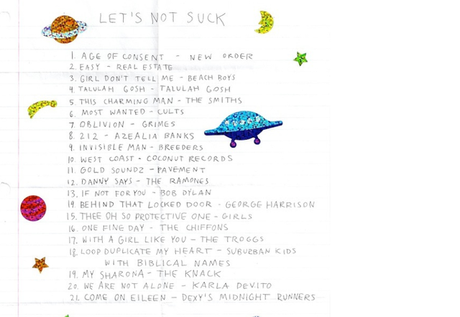 LET'S NOT SUCK
1. AGE OF CONSENT - NEW ORDER
2. EASY - REAL ESTATE
3. GIRL DON'T TELL ME - BEACH BOYS
4. TALULAH GOSH - TALULAH GOSH
5. THIS CHARMING MAN - THE SMITHS
6. MOST WANTED - CULTS
7. OBLIVION - GRIMES
8. 212 - AZEALIA BANKS
9. INVISIBLE MAN - BREEDERS
10. WEST COAST - COCONUT RECORDS
11. GOLD SOUNDZ - PAVEMENT
12. DANNY SAYS - THE RAMONES
13. IF NOT FOR YOU - BOB DYLAN
14. BEHIND THAT LOCKED DOOR - GEORGE HARRISON
15. THEE OH SO PROTECTIVE ONE - GIRLS
16. ONE FINE DAY - THE CHIFFONS
17. WITH A GIRL LIKE YOU - THE TROGGS
18. LOOP DUPLICATE MY HEART - SUBURBAN KIDS
WITH BIBLICAL NAMES
19. MY SHARONA - THE KNACK
20. WE ARE NOT ALONE - KARLA DEVITO
21. COME ON EILEEN - DEXY'S MIDNIGHT RUNNERS